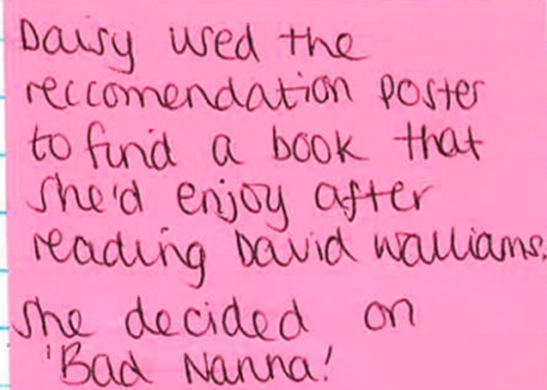 Daisy used the
reccomendation poster
to find a book that
she'd enjoy after
reading David Walliams.
She decided on
'Bad Nanna!'